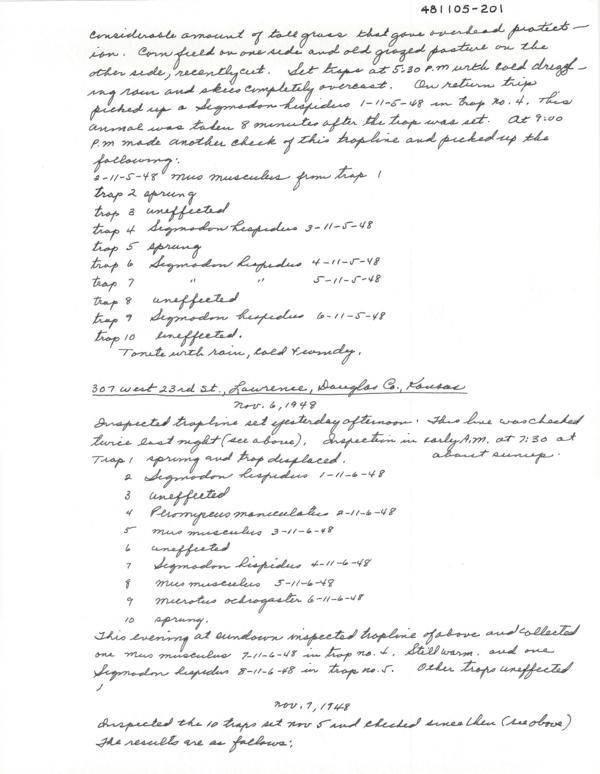 481105-201
considerable amount of tall grass that gave overhead protect-
ion. Corn field on one side and old grazed pasture on the
other side, recently cut. Set traps at 5:30 P.M with cold drizzl-
ing rain and skies completely overcast. On return trip
picked up a Sigmodon hispidus 1-11-5-48 in trap no. 4. This
animal was taken 8 minutes after the trap was set. At 9:00
P.M made another check of this trapline and picked up the
following:
2-11-5-48 Mus musculus from trap 1
trap 2 sprung
trap 3 uneffected
trap 4 Sigmodon hispidus 3-11-5-48
trap 5 sprung
trap 6 Sigmodon hispidus 4-11-5-48
trap 7 " " 5-11-5-48
trap 8 uneffected
trap 9 Sigmodon hispidus 6-11-5-48
trap 10 uneffected.
Tonite with rain, cold & windy.
307 West 23rd St., Lawrence, Douglas Co., Kansas
Nov. 6, 1948
Inspected trapline set yesterday afternoon. This line was checked
twice last night (see above). Inspection in early A.M. at 7:30 at
Trap 1 sprung and trap displaced. about sunup.
2 Sigmodon hispidus 1-11-6-48
3 uneffected
4 Peromyscus maniculatus 2-11-6-48
5 mus musculus 3-11-6-48
6 uneffected
7 Sigmodon hispidus 4-11-6-48
8 Mus musculus 5-11-6-48
9 Microtus ochrogaster 6-11-6-48
10 sprung.
This evening at sundown inspected trapline of above and collected
one Mus musculus 7-11-6-48 in trap no. 4. Still warm. and one
Sigmodon hispidus 8-11-6-48 in trap no. 5. Other traps uneffected
Nov. 7, 1948
Inspected the 10 traps set Nov 5 and checked since then (see above)
The results are as follows: